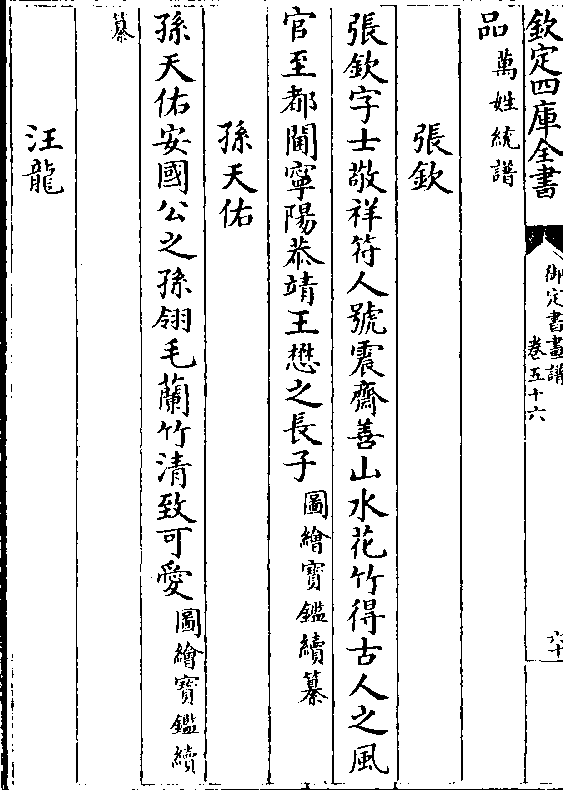 欽定四庫全書
御定書畫譜
卷五十六
六十
品萬姓統譜
張欽
張欽字士敬祥符人號震齋善山水花竹得古人之風
官至都閫寧陽恭靖王懋之長子圖繪寶鑑續纂
孫天佑
孫天佑安國公之孫翎毛蘭竹清致可愛圖繪寶鑑續
纂
汪龍